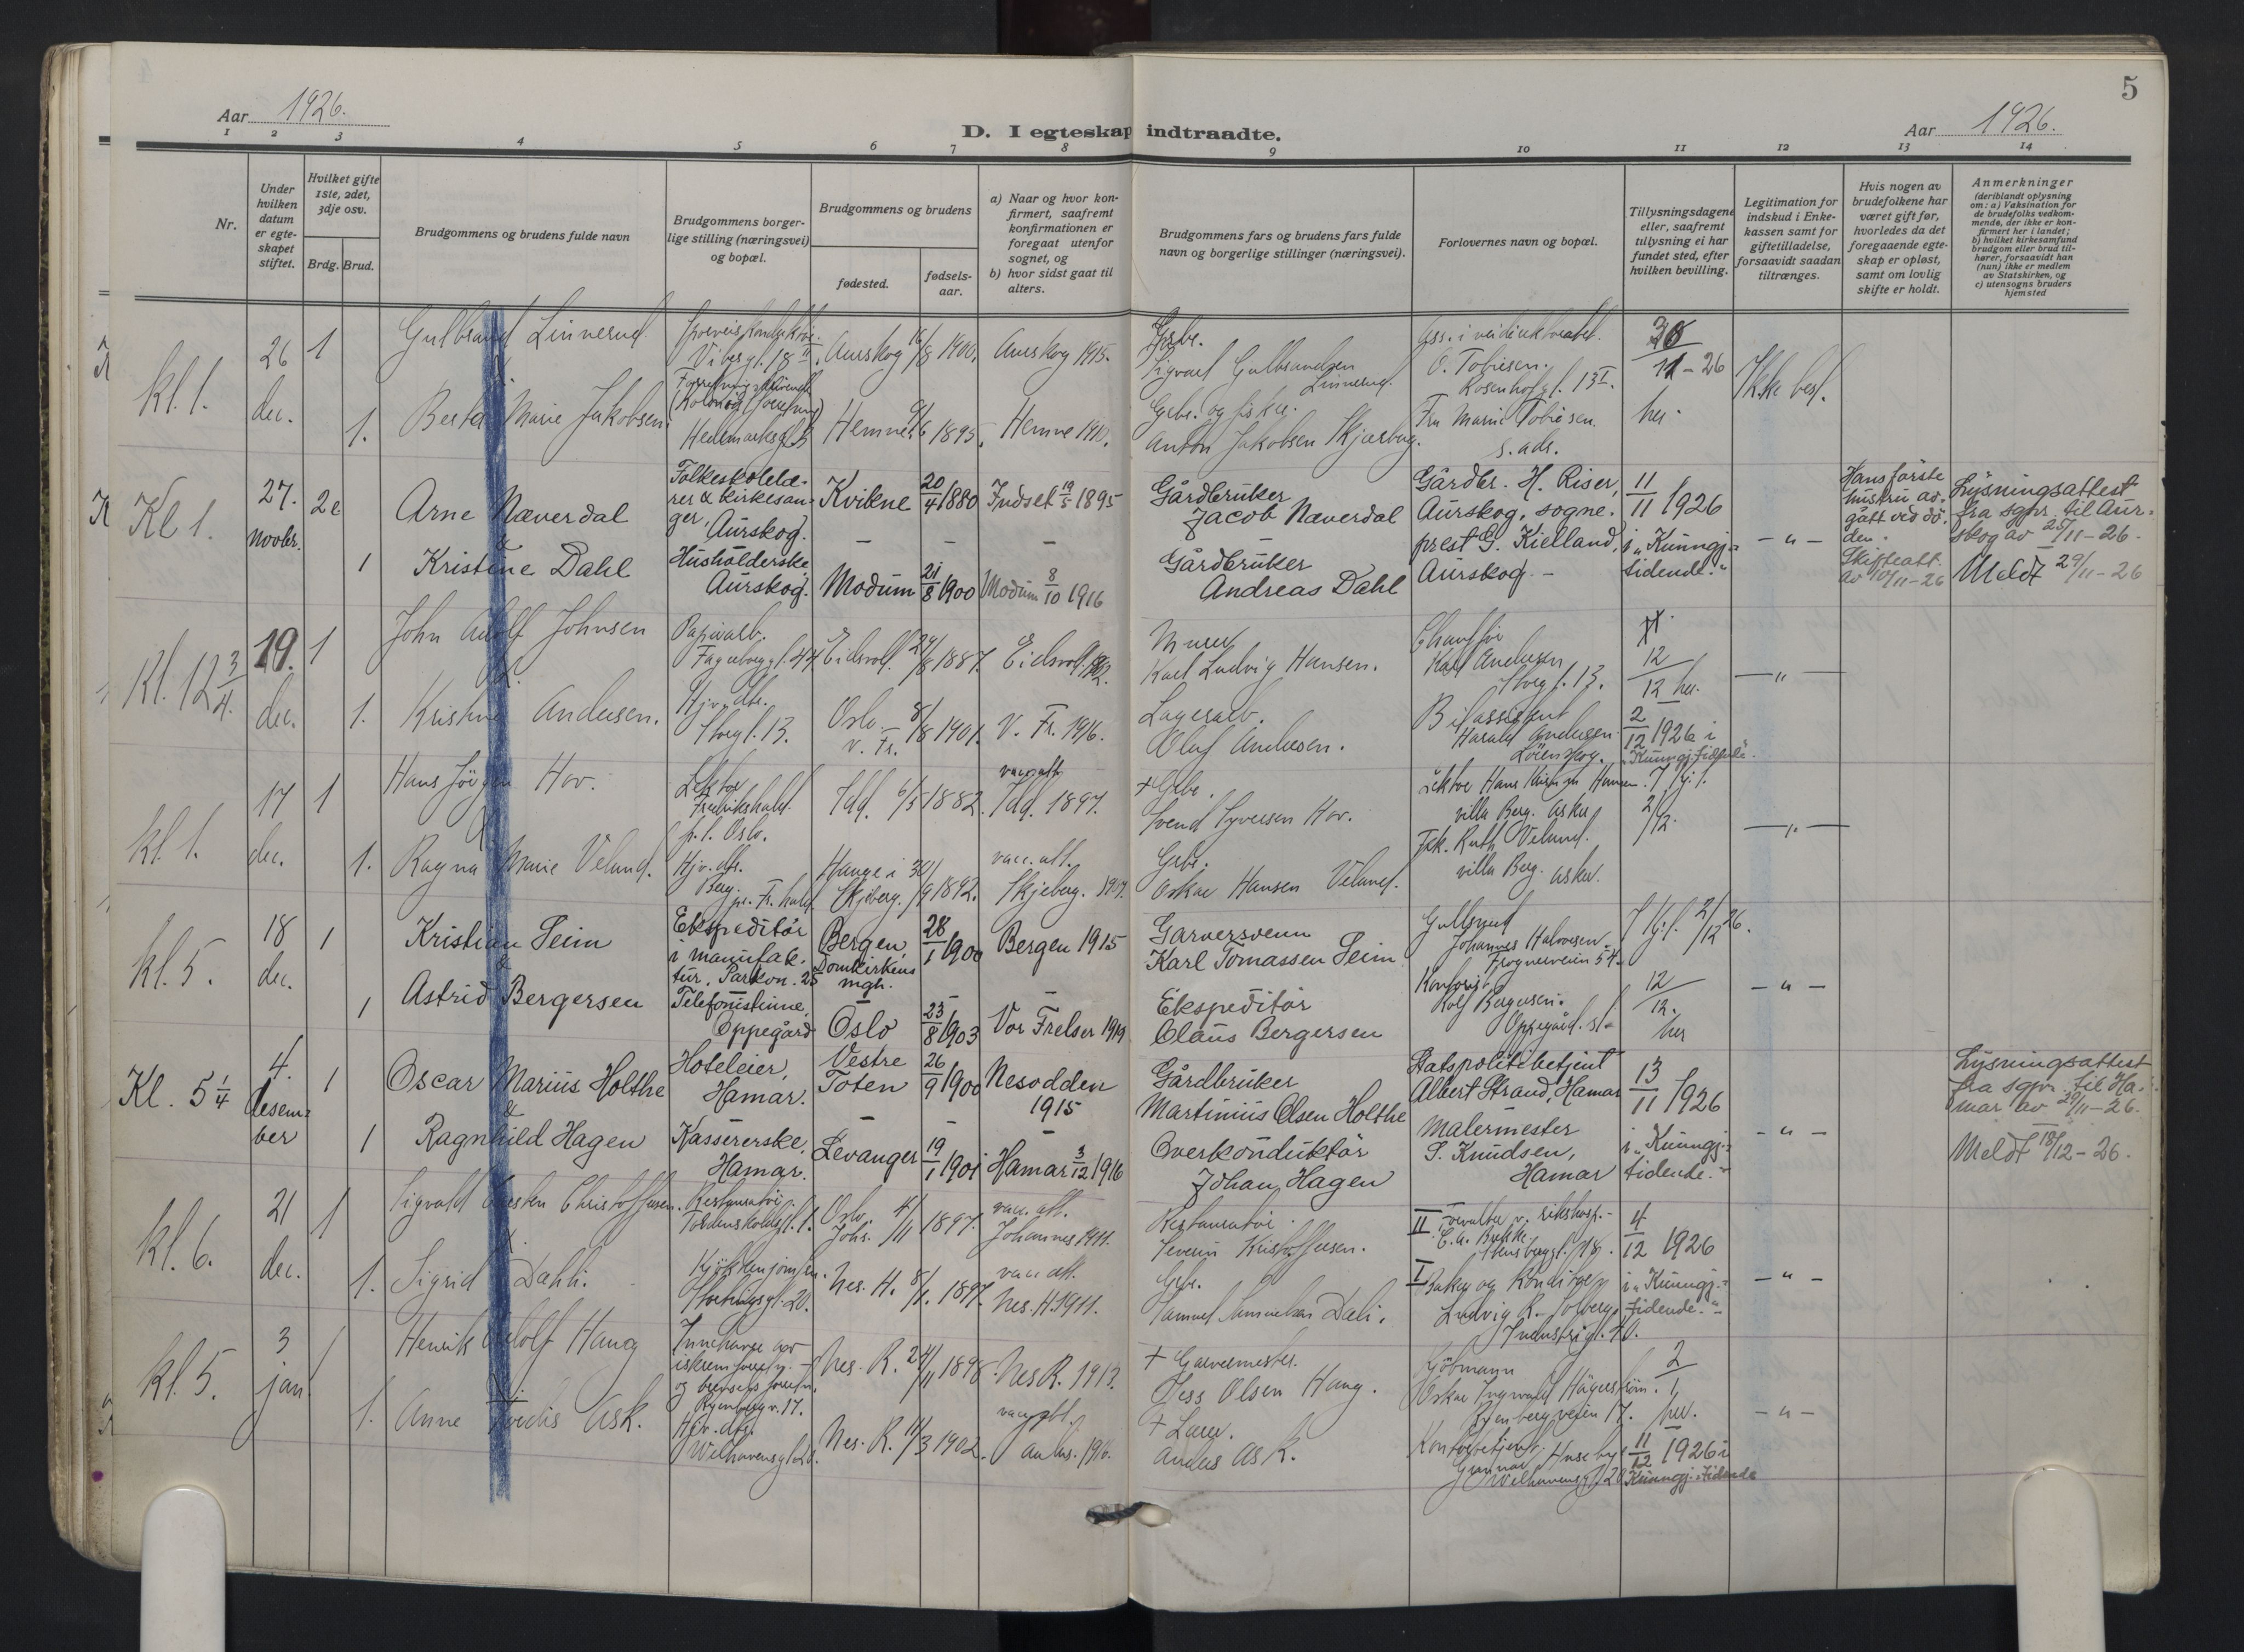 5
Aar 1926.
D. I egteskap indtraadte.
Aar 1926.
1 2 3 4 5 6 7 8 9 10 11 12 13 14
Nr.
Under
hvilken
datum
er egte-
skapet
stiftet.
Hvilket gifte
1ste, 2det,
3dje osv.
Brdg. Brud.
Brudgommens og brudens fulde navn
Brudgommens borger-
lige stilling (næringsvei)
og bopæl.
Brudgommens og brudens
fødested.
fødsels-
aar.
a) Naar og hvor kon-
firmert, saafremt
konfirmationen er
foregaat utenfor
sognet, og
b) hvor sidst gaat til
alters.
Brudgommens fars og brudens fars fulde
navn og borgerlige stillinger (næringsvei).
Forlovernes navn og bopæl.
Tillysningsdagene
eller, saafremt
tillysning ei har
fundet sted, efter
hvilken bevilling.
Legitimation for
indskud i Enke-
kassen samt for
giftetilladelse,
forsaavidt saadan
tiltrænges.
Hvis nogen av
brudefolkene har
været gift før,
hvorledes da det
foregaaende egte-
skap er opløst,
samt om lovlig
skifte er holdt.
Anmerkninger
(deriblandt oplysning
om: a) Vaksination for
de brudefolks vedkom-
mende, der ikke er kon-
firmert her i landet;
b) hvilket kirkesamfund
brudgom eller brud til-
hører, forsaavidt han
(hun) ikke er medlem
av Statskirken, og
c) utensogns bruders
hjemsted
kl. 1.
26
dec.
1
1.
Gulbrand Linnerud
&
Berta Marie Jakobsen
Vibesgt. 18 II.
Hedemarksgt. 3
Aurskog 16/8 1900.
Hemne 1895.
Aurskog 1915.
Hemne 1910.
Grbr.
Sigvart Gulbrandsen
Linnerud.
Grbr. og fisker.
Anton Jakobsen Skjærbug.
Ass. i veidirektoratet.
O. Tobiesen.
Rosenhofgt. 13 I.
Fru Marie Tobiesen.
s. adr.
11 - 26
her.
Ikke bef.
Kl 1.
27.
novbr.
2e
1
Arne Næverdal
&
Kristine Dahl
Folkeskolelæ-
rer & kirkesan-
ger,
Aurskog.
Husholderske,
Aurskog.
Kvikne 20/4 1880
Modum 21/8 1900
Indset 19/5 1895
Modum 8/10 1916
Gårdbruker
Jacob Næverdal
Gårdbruker
Andreas Dahl
Gårdbr. H. Riser,
Aurskog, sogne-
prest G. Kielland,
Aurskog. -
11/11 1926
i „Kunngj.-
tidende."
- „ -
Hans første
hustru av-
gått ved dø-
den.
Skifteatt.
av 10/11-26
Lysningsattest
fra sgpr. til Aur-
skog av 25/11-26.
Meldt 29/11-26
Kl. 12 3/4.
19.
dec.
1
1.
John Adolf Johnsen
&
Kristine Andersen.
Papirarb.
Fagerborggt. 44
Hjv. dtr.
Storgt. 13.
Eidsvoll. 24/8 1887.
Oslo. V. Fr. 8/8 1901.
Eidsvoll. 1902.
V. Fr. 1916.
Murer
Karl Ludvig Hansen.
Lagerarb.
Olaf Andersen.
Chauffør
Karl Andersen
Storgt. 13.
Bilassistent
Harald Andersen
Lørenskog.
12/12 her.
2/12 1926 i
„Kunngj. tidende".
- „ -
kl. 1.
17
dec.
1
1.
Hans Jørgen Hov.
&
Ragna Marie Velund.
Lektor
Fredrikshald.
p. t. Oslo.
Hjv. dtr.
Berg.
pr. Fr.hald
Idd. 6/5 1882.
Hauge i
Skjeberg. 30/9 1892.
vacc. att.
Idd. 1897.
vacc. att.
Skjeberg. 1907.
+ Grbr.
Svend Syversen Hov.
Grbr.
Oskar Hansen Velund.
Lektor Hans Hansen.
villa Berg. Asker
Frk. Ruth Velund.
villa Berg. Asker.
2/12.
- „ -
kl. 5.
18
dec.
1
1
Kristian Seim
&
Astrid Bergersen
Ekspeditør
i manufak-
tur. Parkvn. 25
Telefonistinne,
Oppegård
Bergen,
Domkirkens
mgh. 28/1 1900
Oslo 23/8 1903
Bergen 1915
Vor Frelser 1919
Garversvenn
Karl Tomassen Seim
Ekspeditør
Claus Bergersen
Gullsmed
Johannes Halvorsen.
Frognerveien 54.
Kontorist
Rolf Bergersen.
Oppegård. st.
2/12 26.
12/12.
her
- „ -
Kl. 5 1/4
4.
desem-
ber
1
1
Oscar Marius Holthe
&
Ragnhild Hagen
Hoteleier,
Hamar.
Kassererske,
Hamar.
Vestre
Toten 26/9 1900
Levanger 19/1 1901
Nesodden
1915
Hamar 3/12 1916
Gårdbruker
Martinius Olsen Holthe
Overkonduktør
Johan Hagen
Statspolitibetjent
Albert Strand, Hamar
Malermester
S. Knudsen,
Hamar
13/11 1926
i „Kunngj.-
tidende."
- „ -
Lysningsattest
fra sgpr. til Ha-
mar av 29/11-26.
Meldt 18/12-26.
kl. 6.
21
dec.
1
1.
Sigvald Christoffersen.
&
Sigrid Dahli.
Restauratør.
Tordenskioldsgt. 1.
Kjøkkenjomfru.
Oslo. Johs. 4/11 1897.
Nes. H. 8/1. 1897.
vacc. att.
Johannes 1911.
vacc. att.
Nes. H. 1911.
Restauratør.
Severin Kristoffersen.
Grbr.
Samuel Samuelsen Dahli.
II Forvalter v. rikshosp.
Stensberggt.
I Baker og konditor
Ludvig R. Solberg.
Industrigt. 40.
4/12 1926
i „Kunngj.-
tidende."
- „ -
kl. 5.
3
jan.
1
1.
Henrik Adolf Haug
&
Anne Hvedis Ask.
Innehaver av
iskremforretn.
og brenselsforretn.
Ryenbergv. 17.
Hjv. dtr.
Welhavensgt. 20.
Nes. R. 24/11 1898.
Nes. R. 11/3 1902.
Nes R. 1913.
vacc. att.
+ Garvermester.
Jess Olsen Haug.
+ Lærer.
Anders Ask.
Oskar Ingvald Hägerstrøm.
Ryenbergveien 17.
Kontorbetjent
Gunnar Huseby
Welhavensgt. 20
2/1
her.
11/12 1926 i
Kunngj. tidende
- „ -